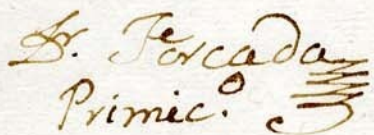 Dr. Forcada
Primic.º